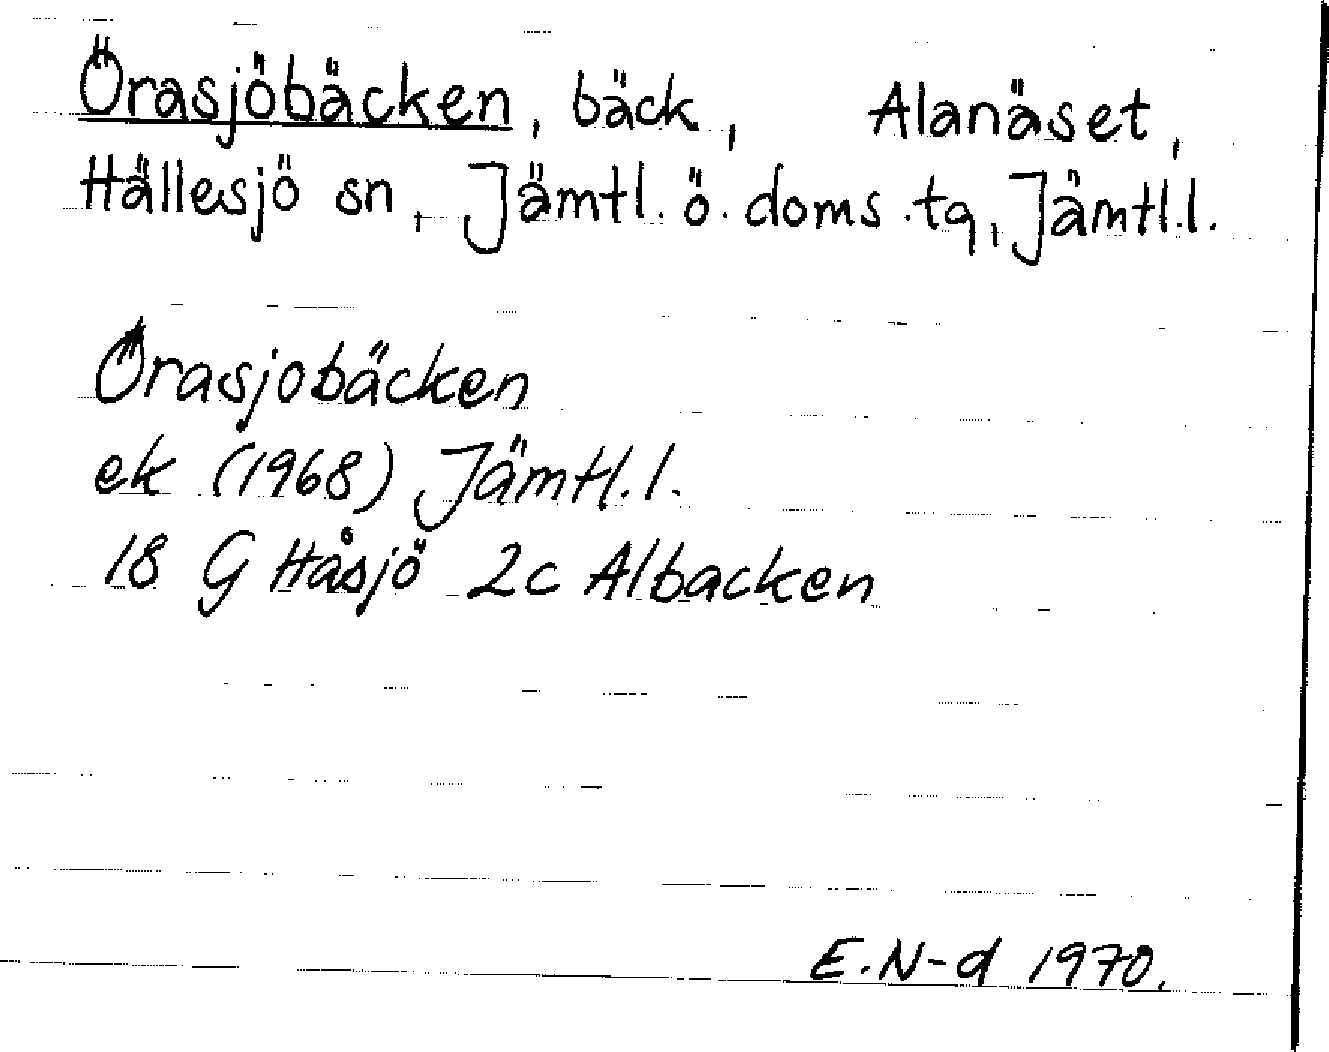 Örasjöbäcken, bäck, Alanäset,
Hällesjö sn, Jämtl. ö. doms. tg, Jämtl.l.
Örasjobäcken
ek (1968) Jämtl.l.
18 G Håsjö 2c Albacken
E.N-d 1970.